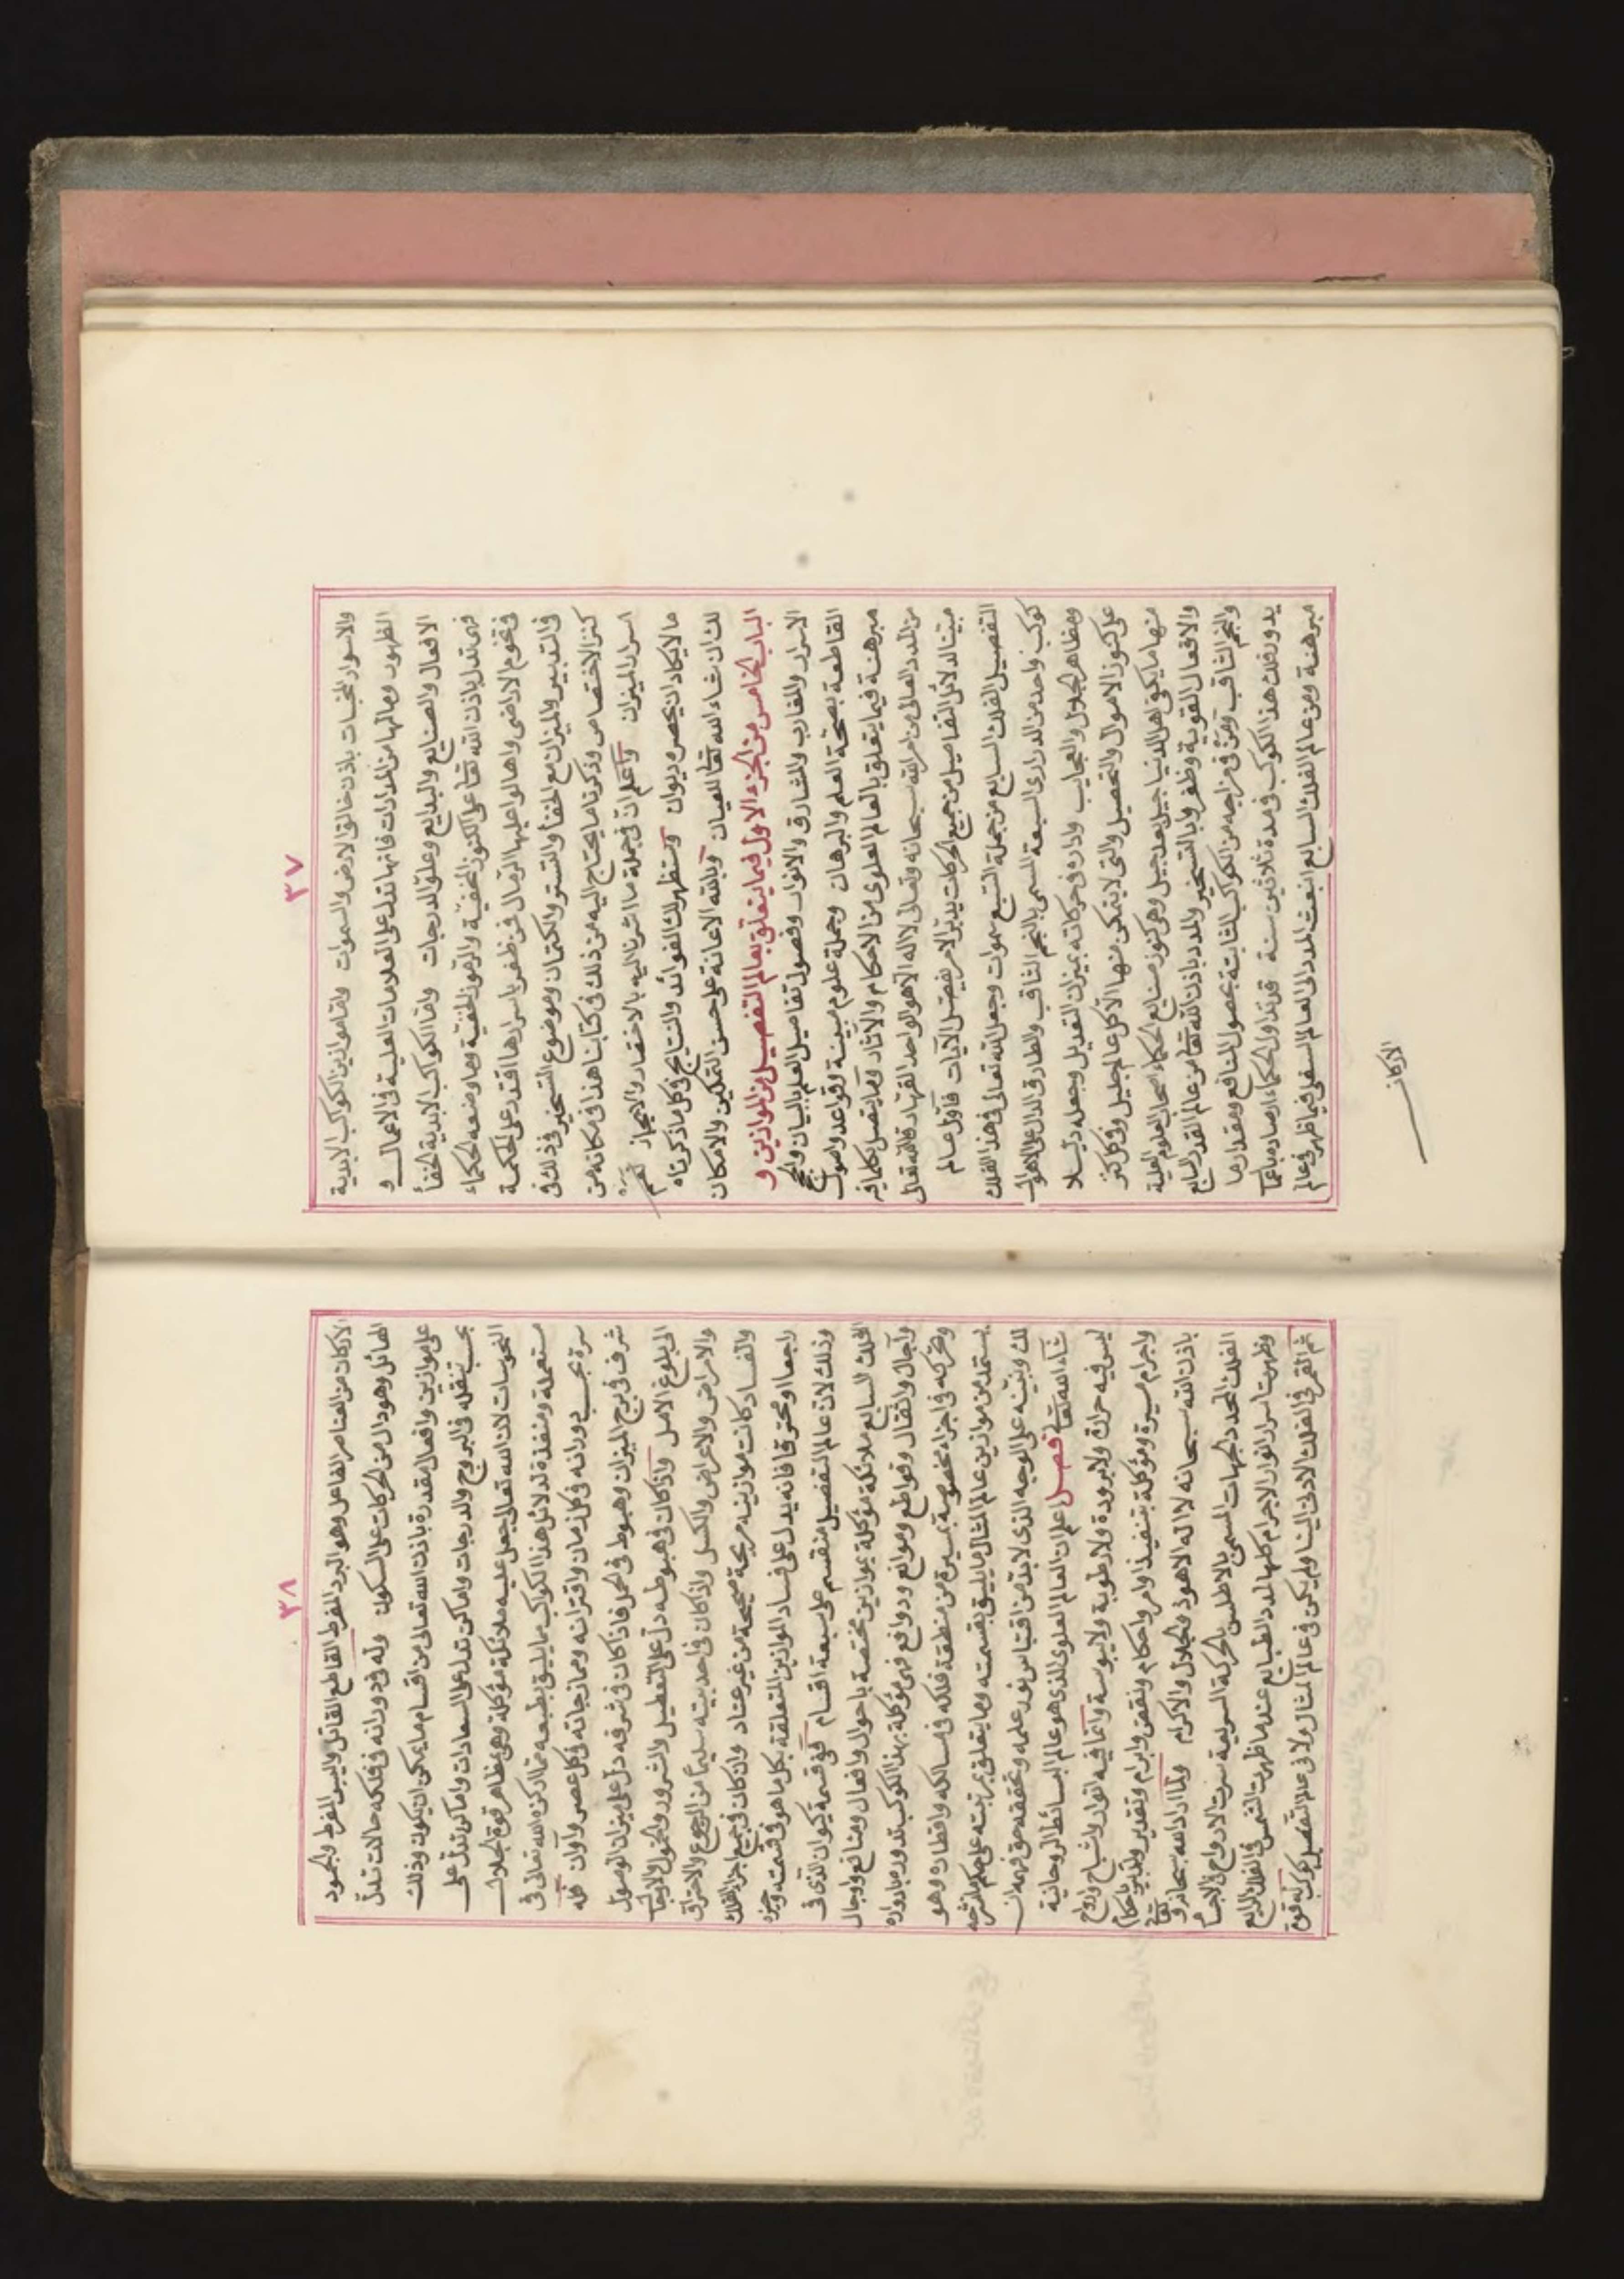 ٣٧
والاسرار المخبيات باذن خالق الارض والسموات واما موازين الكواكب الابدية
الظهور ومالها من المدارات فانها تدل على العلامات العلية فى الاعمال و
الافعال والصنايع والبدايع وعلو الدرجات واما الكواكب الابدية الخفأ
فهى تدل باذن الله تعا على الكنوز المخفية والرموز الخفية وما وضعه الحكماء
فى تخوم الاراضى واهالوا عليها الرمال فمن ظفر باسرارها اقتدر على الحكمة
فى التدبير والميزان مع الخفأ والتستر والكتمان وموضوع التسخير فى ذلك فى
كنز الاختصاص وذكرنا ما يحتاج اليه من ذلك فى كتابنا هذا فى مكانه من
اسرار الميزان واعلم ان فى جملة ما اشرنا اليه بالاختصار والايجاز
ما لا يكاد ان يحصره ديوان وستظهر لك الفوائد والنتايج فى كل ما ذكرناه
لك ان شاء الله تعا للعيان وبالله الاعانة على حسن التمكين والامكان
الباب الخامس من الجزء الاول فيما يتعلق بعالم التفصيل من الموازين و
الاسرار والمغارب والمشارق والانوار وفصول تفاصيل العلم بالبيان والحجج
القاطعة بصحة العلم والبرهان وجملة علوم مبينة وقواعد واصول
مبرهنة فيما يتعلق بالعالم العلوى من الاحكام والآثار وما يتصل بكل ما فيه
من المدد العالى من امر الله سبحانه وتعالى لا اله الا هو الواحد القهار قال الله تعالى
مبينا لدلائل التفاصيل من جميع الحركات يدبر الامر يفصل الآيات فاول عالم
التفصيل الفلك السابع من جملة السبع سموات وجعل الله تعالى فى هذا الفلك
كوكب واحد من الدرارى السبعة المسمى بالنجم الثاقب والطارق الدال على الاهوال
ومظاهر الجلال والعجايب واداره فى حركاته بميزان التعديل وجعله دليلا
على كنوز الاموال والتحصيل والتى لا يتمكن منها الا كل عالم جليل وفى كل كنز
منها ما يكفى اهل الدنيا جيل بعد جيل وهى كنوز صنايع الحكماء اصحاب العلوم العلية
والافعال القوية وظفروا بالتسخير والمدد باذن الله تعا من عالم القدر السابع
والنجم الثاقب ومن فى مزاجه من الكواكب الثابتة بحصول المنافع ومقدار ما
يدور فلك هذا الكوكب فى مدة ثلاثين سنة قد تداول الحكماء ارصاده باحكام
مبرهنة ومن عالم الفلك السابع انبعث المدد الى العالم السفلى فيما ظهر فى عالم
الاركان
٣٨
الاركان من العناصر الفاعل وهو البرد المفرط القاطع القاتل واليبس المفرط والجمود
الهائل وهو دال من الحركات على السكون وله فى دورانه فى فلكه حالات تدل
على موازين وافعال مقدرة باذن الله تعالى من اقسام ما يمكن ان يكون وذلك
بحسب تنقله فى البروج والدرجات واماكن تدل على السعادات واماكن تدل على
النحوسات لان الله تعالى جعل عليه ملائكة مؤكلة وهى مظاهر قوة الجلال
مستعملة ومنفذة لدلائل هذا الكوكب بما يليق بطبعه مما ادركزه الله تعالى فى
سره بحسب دورانه فى كل زمان واقترانه وممازجاته فى كل عصر وآوان فله
شرف فى برج الميزان وهبوط فى الحمل فاذا كان فى شرفه دل على ميزان الوصول
الى بلوغ الامل واذا كان فى هبوطه دل على التعطيل والشرور والخمول والاوجاع
والامراض والاعراض والكسل واذا كان فى احد بيته سليماً من الرجوع والاحتراق
والفساد كانت موازينه مريحة صحيحة من غير عناد وان كان فى جميع اجزاء الفلك
راجعا او محترقا فانه يدل على فساد الموازين المتعلقة بكل ما هو فى قسمته وحيزه
وذلك لان عالم التفصيل منقسم على سبعة اقسام ففى قسمة كيوان الذى فى
الفلك السابع ملائكة مؤكلة بموازين مختصة باحوال وافعال ومنافع واوجال
وآجال واثقال وقواطع وموانع ودوافع فهى مؤكلة بهذا الكوكب تدوره بادواره
وتحركه فى اجزاء مخصوصة بمسيره من منطقة فلكه فى مسالكه واقطاره وهو
يستمد من موازين عالم المثال ما يليق بقسمته وما يتعلق بمرتبته على حكم ما نشرحه
لك ونبينه على الوجه الذى لا بد من اقتباس نور علمه وتحققه حق فهمه ان
شاء الله تعالى فصل اعلم ان العالم العلوى الذى هو عالم البسائط الروحانية
ليس فيه حرارة ولا برودة ولا رطوبة ولا يبوسة وانما فيه انوار واشباح وارواح
واجرام مسيرة ومؤكلة بتنفيذ اوامر واحكام ونقض وابرام وتقدير وتدبير باحكام
باذن الله سبحانه لا اله الا هو ذو الجلال والاكرام ولما اراد الله سبحانه وتعا
الفلك المحدد للجهات المسمى بالاطلس بالحركة السريعة سرت الارواح فى الاجسام
وظهرت اسرار انوار الاجرام كلها لمدد الطبايع عندما ظهرت الشمس فى الفلك الرابع
ثم القمر فى الفلك الادنى الينا ولم يكن فى عالم المثال ولا فى عالم التفصيل كوكب له قوة